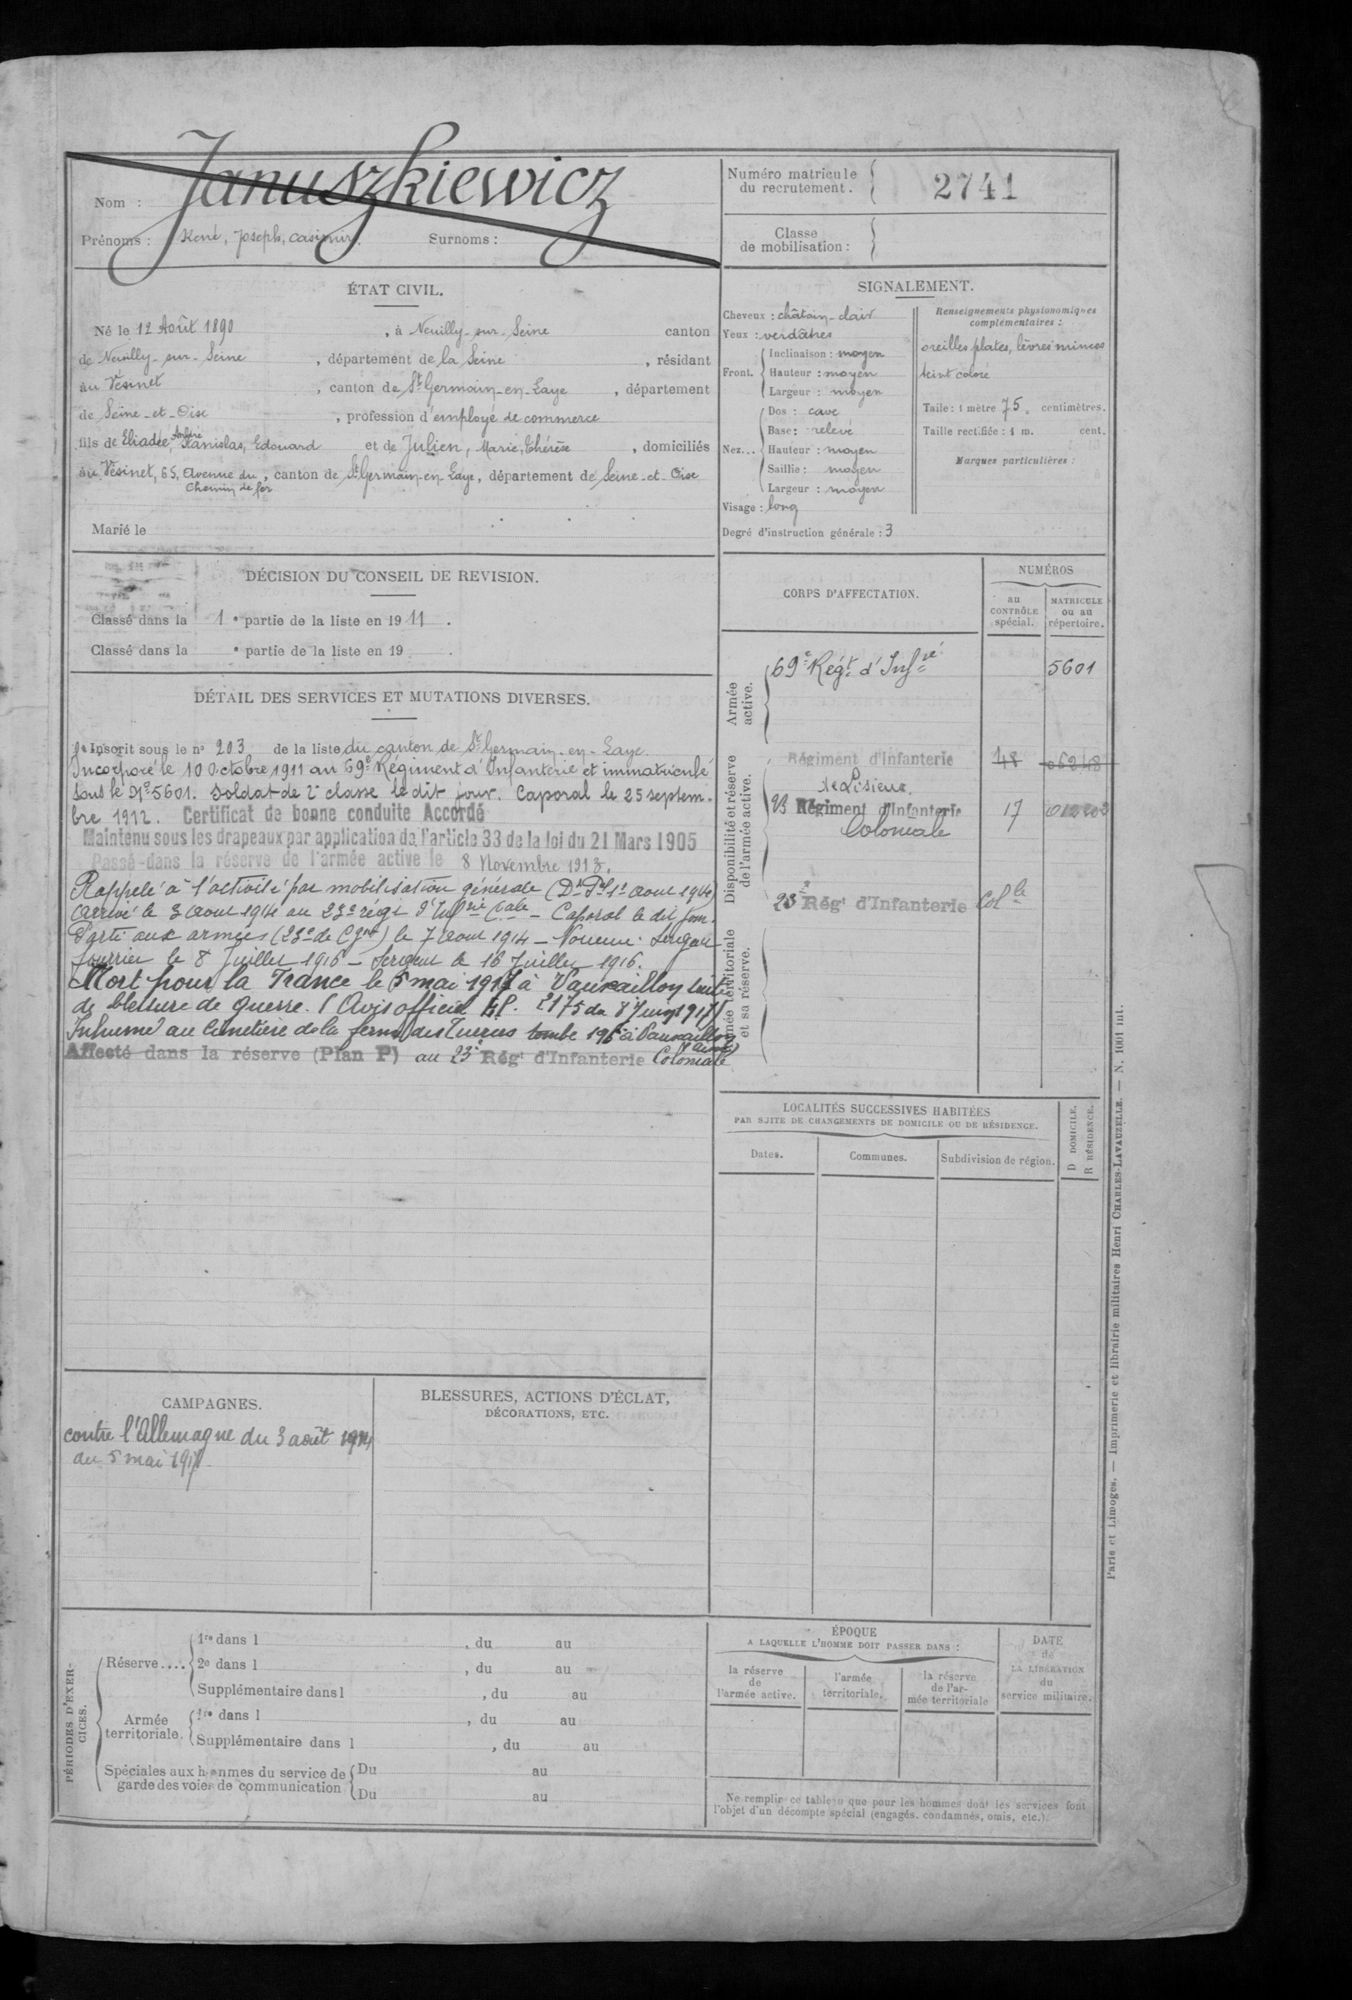 Nom : Januszkiewicz
Prénoms : René, Joseph, Casimir. Surnoms :
Numéro matricule du recrutement. 2741
Classe de mobilisation :
ÉTAT CIVIL.
Né le 12 Août 1890, à Neuilly-sur-Seine canton
de Neuilly-sur-Seine, département de la Seine, résidant
au Vésinet, canton de St Germain-en-Laye, département
de Seine-et-Oise, profession d'employé de commerce
fils de Eliadée, Stanislas, Edouard et de Julien, Marie, Thérèse, domiciliés
au Vésinet, 65, Avenue du, canton de St Germain-en-Laye, département de Seine-et-Oise
Chemin de fer
Marié le
SIGNALEMENT.
Cheveux : châtain-clair
Yeux : verdâtres
Front. Inclinaison : moyen
Hauteur : moyen
Largeur : moyen
Nez... Dos : cave
Base : relevé
Hauteur : moyen
Saillie : moyen
Largeur : moyen
Visage : long
Renseignements physionomiques
complémentaires :
oreilles plates, lèvres minces
teint coloré
Taille : 1 mètre 75. centimètres.
Taille rectifiée : 1 m. cent.
Marques particulières :
Degré d'instruction générale : 3
DÉCISION DU CONSEIL DE REVISION.
Classé dans la 1e partie de la liste en 1911.
Classé dans la e partie de la liste en 19 .
DÉTAIL DES SERVICES ET MUTATIONS DIVERSES.
Inscrit sous le no 203 de la liste du canton de St Germain-en-Laye.
Incorporé le 10 Octobre 1911 au 69e Régiment d'Infanterie et immatriculé
sous le No 5601. Soldat de 2e classe le dit jour. Caporal le 25 septem-
bre 1912. Certificat de bonne conduite Accordé
Maintenu sous les drapeaux par application de l'article 33 de la loi du 21 Mars 1905
Passé dans la réserve de l'armée active le 8 Novembre 1913.
Rappelé à l'activité par mobilisation générale (Dt Pel 1r aout 1914)
Arrivé le 3 Aout 1914 au 23e régt d'Infrie Cale - Caporal le dit jour.
Parti aux armées (23e de Cgne) le 7 aout 1914 - Nommé : Sergent
fourrier le 8 Juillet 1916 - Sergent le 16 Juillet 1916.
Mort pour la France le 5 mai 1917 à Vauxaillon suite
de blessure de guerre. (Avis officiel 175 du 8 Juin 1917)
Inhumé au cimetière de la ferme des tombe 195 à Vauxaillon
(Aisne)
Affecté dans la réserve (Plan P) au 23e Régt d'Infanterie Coloniale
CORPS D'AFFECTATION.
NUMÉROS
au CONTRÔLE spécial.
MATRICULE ou au répertoire.
Armée active.
69e Régt d'Infrie 5601
Disponibilité et réserve de l'armée active.
Régiment d'Infanterie 48 06248
de Lisieux.
23 Régiment d'Infanterie 17
Coloniale
23e Régt d'Infanterie Colle
Armée territoriale et sa réserve.
LOCALITÉS SUCCESSIVES HABITÉES
PAR SUITE DE CHANGEMENTS DE DOMICILE OU DE RÉSIDENCE.
Dates. Communes. Subdivision de région.
D DOMICILE.
R RÉSIDENCE.
CAMPAGNES.
contre l'Allemagne du 3 août 1914
au 5 mai 1917
BLESSURES, ACTIONS D'ÉCLAT,
DÉCORATIONS, ETC.
PÉRIODES D'EXERCICES.
Réserve.... 1re dans l , du au
2e dans l , du au
Supplémentaire dans l , du au
Armée territoriale. 1re dans l , du au
Supplémentaire dans l , du au
Spéciales aux hommes du service de Du au
garde des voies de communication Du au
ÉPOQUE
A LAQUELLE L'HOMME DOIT PASSER DANS :
la réserve de l'armée active.
l'armée territoriale.
la réserve de l'armée territoriale
DATE de LA LIBÉRATION du service militaire.
Ne remplir ce tableau que pour les hommes dont les services font
l'objet d'un décompte spécial (engagés, condamnés, omis, etc.).
Paris et Limoges. — Imprimerie et librairie militaires Henri CHARLES-LAVAUZELLE. — N. 1001 int.